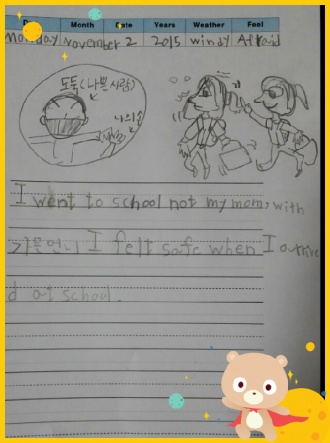 Day Month Date Years Weather Feel
Monday November 2 2015 windy Afraid
도둑(나쁜사람)
나의손
I went to school not my mom, with
가은언니 I felt safe when I arrive
d at school.